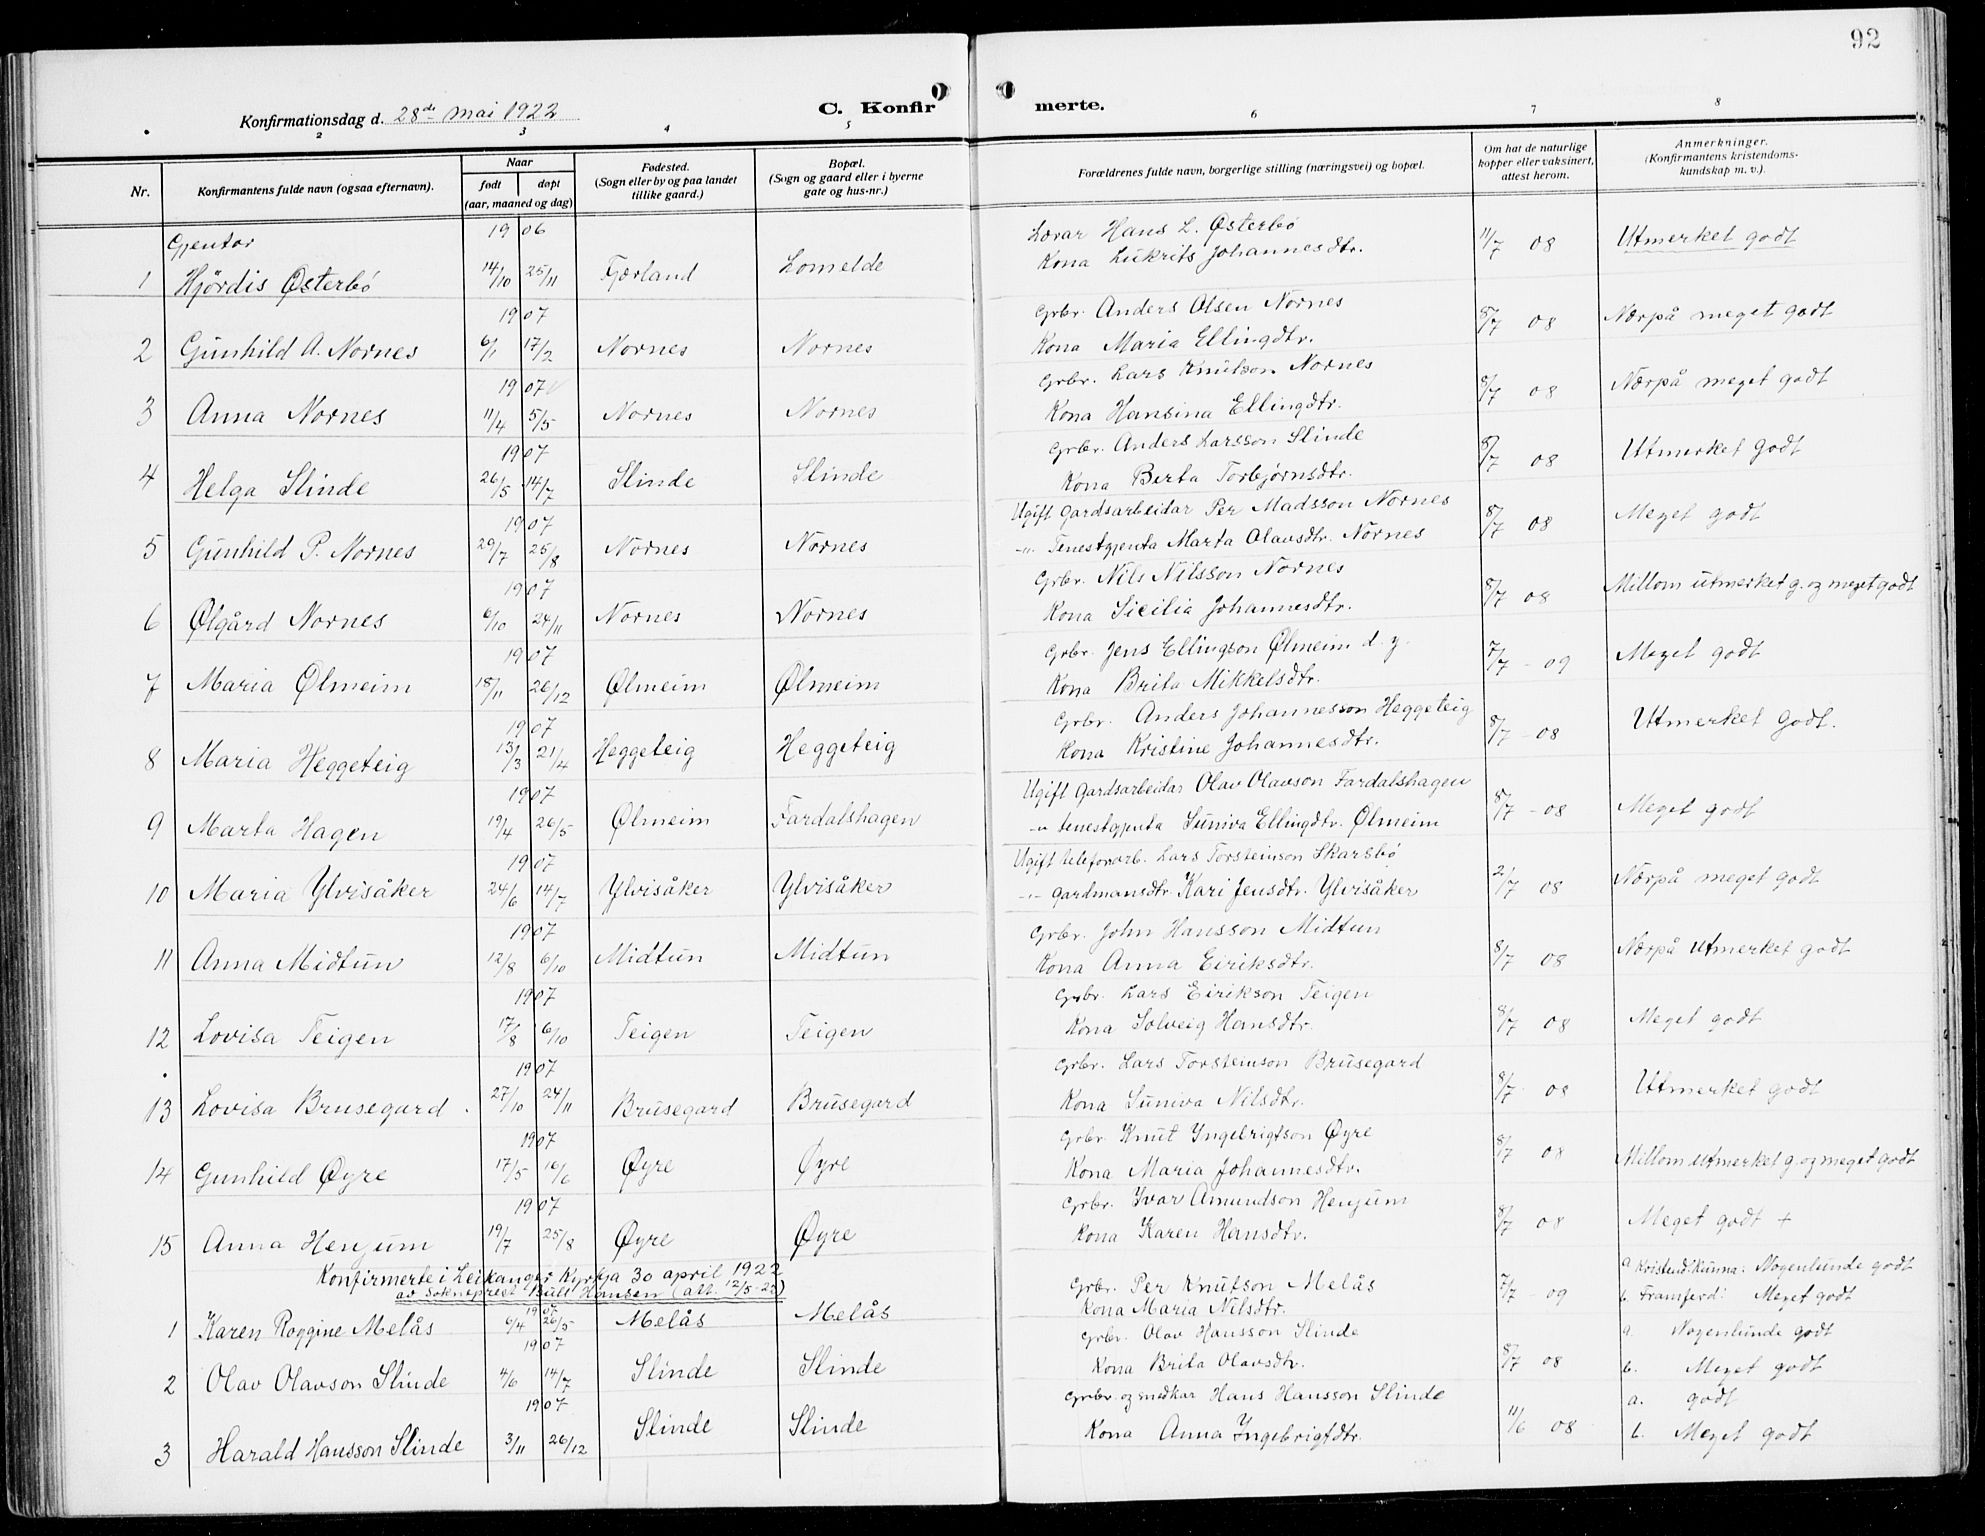 92
Konfirmationsdag d. 28de mai 1922
C. Konfirmerte.
2 3 4 5 6 7 8
Nr.
Konfirmantens fulde navn (ogsaa efternavn).
Naar
født døpt
(aar, maaned og dag)
Fødested.
(Sogn eller by og paa landet
tillike gaard.)
Bopæl.
(Sogn og gaard eller i byerne
gate og hus-nr.)
Forældrenes fulde navn, borgerlige stilling (næringsvei) og bopæl.
Om hat de naturlige
kopper eller vaksinert,
attest herom.
Anmerkninger.
(Konfirmantens kristendoms-
kundskap m. v.).
Gjentor
1906
Lærar Hans L. Østerbø
1 Hjørdis Østerbö 14/10 25/11 Fjærland Lomelde Kona Lukrits Johannesdtr. 11/7 08 Utmerket godt
1907 Grbr. Anders Olsen Nornes
2 Gunhild A. Nornes 6/1 17/2 Nornes Nornes Kona Maria Ellingdtr. 8/7 08 Nærpå meget godt
1907 Grbr. Lars Knutson Nornes
3 Anna Nornes 11/4 5/5 Nornes Nornes Kona Hansina Ellingdtr. 8/7 08 Nærpå meget godt
1907 Grbr. Anders Larsson Slinde
4 Helga Slinde 26/5 14/7 Slinde Slinde Kona Berta Torbjørnsdtr. 8/7 08 Utmerket godt
1907 Ugift Gardsarbeidar Per Madsson Nornes
5 Gunhild P. Nornes 29/7 25/8 Nornes Nornes -"- Tenestgjenta Marta Olavsdtr. Nornes 8/7 08 Meget godt
1907 Grbr. Nils Nilsson Nornes
6 Ølgård Nornes 6/10 24/11 Nornes Nornes Kona Sicilia Johannesdtr. 8/7 08 Millom utmerket g. og meget godt
1907 Grbr. Jens Ellingson Ølmeim d. y.
7 Maria Ølmeim 18/11 26/12 Ølmeim Ølmeim Kona Brita Mikkelsdtr. 7/7 - 09 Meget godt
1907 Grbr. Anders Johannesson Heggeteig
8 Maria Heggeteig 13/3 21/4 Heggeteig Heggeteig Kona Kristine Johannesdtr. 8/7 - 08 Utmerket godt.
1907 Ugift Gardsarbeidar Olav Olavson Fardalshagen
9 Marta Hagen 19/4 26/5 Ølmeim Fardalshagen -"- tenestgjenta Suniva Ellingdtr. Ølmeim 8/7 - 08 Meget godt
1907 Ugift telefonarb. Lars Torsteinson Skarsbø
10 Maria Ylvisåker 24/6 14/7 Ylvisåker Ylvisåker -"- Gardmansdtr. Kari Jensdtr. Ylvisåker 2/7 08 Nærpå meget godt
1907 Grbr. John Hansson Midtun
11 Anna Midtun 12/8 6/10 Midtun Midtun Kona Anna Eiriksdtr. 8/7 08 Nærpå utmerket godt
1907 Grbr. Lars Eirikson Teigen
12 Lovisa Teigen 17/8 6/10 Teigen Teigen Kona Solveig Hansdtr. 8/7 08 Meget godt
1907 Grbr. Lars Torsteinson Brusegard
13 Lovisa Brusegard 27/10 24/11 Brusegard Brusegard Kona Suniva Nilsdtr. 8/7 08 Utmerket godt
1907 Grbr. Knut Ingebrigtson Øyre
14 Gunhild Øyre 17/5 16/6 Øyre Øyre Kona Maria Johannesdtr. 8/7 08 Millom utmerket g. og meget godt
1907 Grbr. Ivar Amundson Henjum
15 Anna Henjum 19/7 25/8 Øyre Øyre Kona Karen Hansdtr. 8/7 08 Meget godt +
Konfirmerte i Leikanger Kyrkja 30 april 1922
av Sokneprest Bull Hansen (att. 12/5-22)
1907 Grbr. Per Knutson Melås a. Kristend.kunna: Nogenlunde godt
1 Karen Roggine Melås 6/4 26/5 Melås Melås Kona Maria Nilsdtr. 7/7 - 09 b. Framferd: Meget godt
1907 Grbr. Olav Hansson Slinde a. Nogenlunde godt
2 Olav Olavson Slinde 4/6 14/7 Slinde Slinde Kona Brita Olavsdtr. 8/7 08 b. Meget godt
1907 Grbr. og snedkar Hans Hansson Slinde a. godt
3 Harald Hansson Slinde 3/11 26/12 Slinde Slinde Kona Anna Ingebrigtdtr. 11/6 08 b. Meget godt